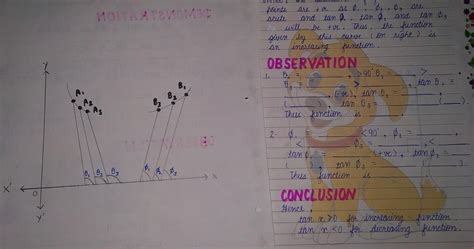 DEMONSTRATION
Y
A₁
A₂
A₃
B₃
B₂
B₁
X'
O
X
Y'
points are +ve as φ₁, φ₂, φ₃ are
acute and tan φ₁, tan φ₂ and tan φ₃
will be +ve. Thus, the function
given by this curve (on right) is
an increasing function.
OBSERVATION
1. θ₁ = , > 90° θ₂ = >
( ve), tan θ₂ =
( ), tan θ₃ = ( )
Thus function is
2. φ₁ < 90°, φ₂ =
tan φ₁ = ( +ve), tan φ₂ =
( ), tan φ₃ =
Thus function is
CONCLUSION
Hence,
tan x > 0 for increasing function
tan x < 0 for decreasing function